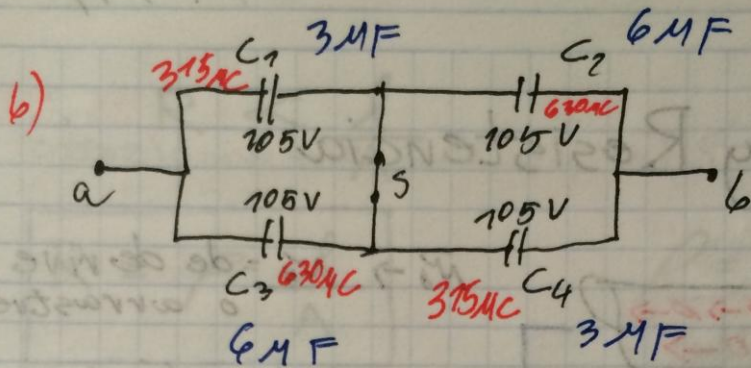 b)
C1 3MF
C2 6MF
315MC
630MC
105V
105V
a
S
b
105V
105V
C3
630MC
315MC
C4
6MF
3MF